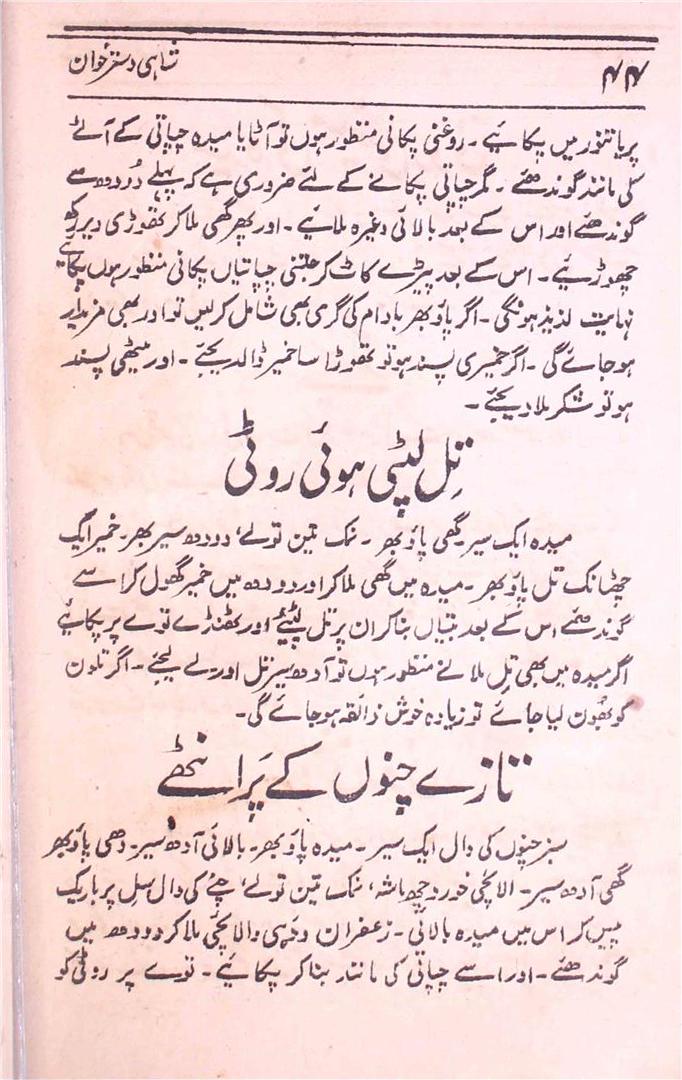 ۴۴
شاہی دسترخوان
پر یا تنور میں پکائیے ۔ روغنی پکانی منظور ہوں تو آٹا یا میدہ چپاتی کے آٹے
کی مانند گوندھئے ۔ مگر چپاتی پکانے کے لئے ضروری ہے کہ پہلے دُودھ سے
گوندھئے اور اس کے بعد بالائی وغیرہ ملائیے ۔ اور پھر گھی ملا کر تھوڑی دیر رکھ
چھوڑئیے ۔ اس کے بعد پیڑے کاٹ کر جتنی چپاتیاں پکانی منظور ہوں پکائیے
نہایت لذیذ ہونگی ۔ اگر پاؤ بھر بادام کی گری بھی شامل کر لیں تو اور بھی مزیدار
ہو جائے گی ۔ اگر خمیری پسند ہو تو تھوڑا سا خمیر ڈالدیجئے ۔ اور میٹھی پسند
ہو تو شکر ملا دیجئے ۔
تِل لپٹی ہوئی روٹی
میدہ ایک سیر گھی پاؤ بھر ۔ نمک تین تولے، دودھ سیر بھر ۔ خمیر ایک
چھٹانک تل پاؤ بھر ۔ میدہ میں گھی ملا کر اور دودھ میں خمیر گھول کر اسے
گوندھئے اس کے بعد بتیاں بنا کر ان پر تل لپٹیئے اور ٹھنڈے توے پر پکائیے
اگر میدہ میں بھی تِل ملانے منظور ہوں تو آدھ سیر تل اور لے لیجئے ۔ اگر تلوں
کو بھُون لیا جائے تو زیادہ خوش ذائقہ ہو جائے گی ۔
تازے چنوں کے پَرانٹھے
سبز چنوں کی دال ایک سیر ۔ میدہ پاؤ بھر ۔ بالائی آدھ سیر ۔ دھی پاؤ بھر
گھی آدھ سیر ۔ الائچی خورد چھ ماشہ، نمک تین تولے، چنے کی دال سِل پر باریک
پیس کر اس میں میدہ بالائی ۔ زعفران دہی و الائچی ملا کر دودھ میں
گوندھئے ۔ اور اسے چپاتی کی مانند بنا کر پکائیے ۔ توے پر روٹی کو